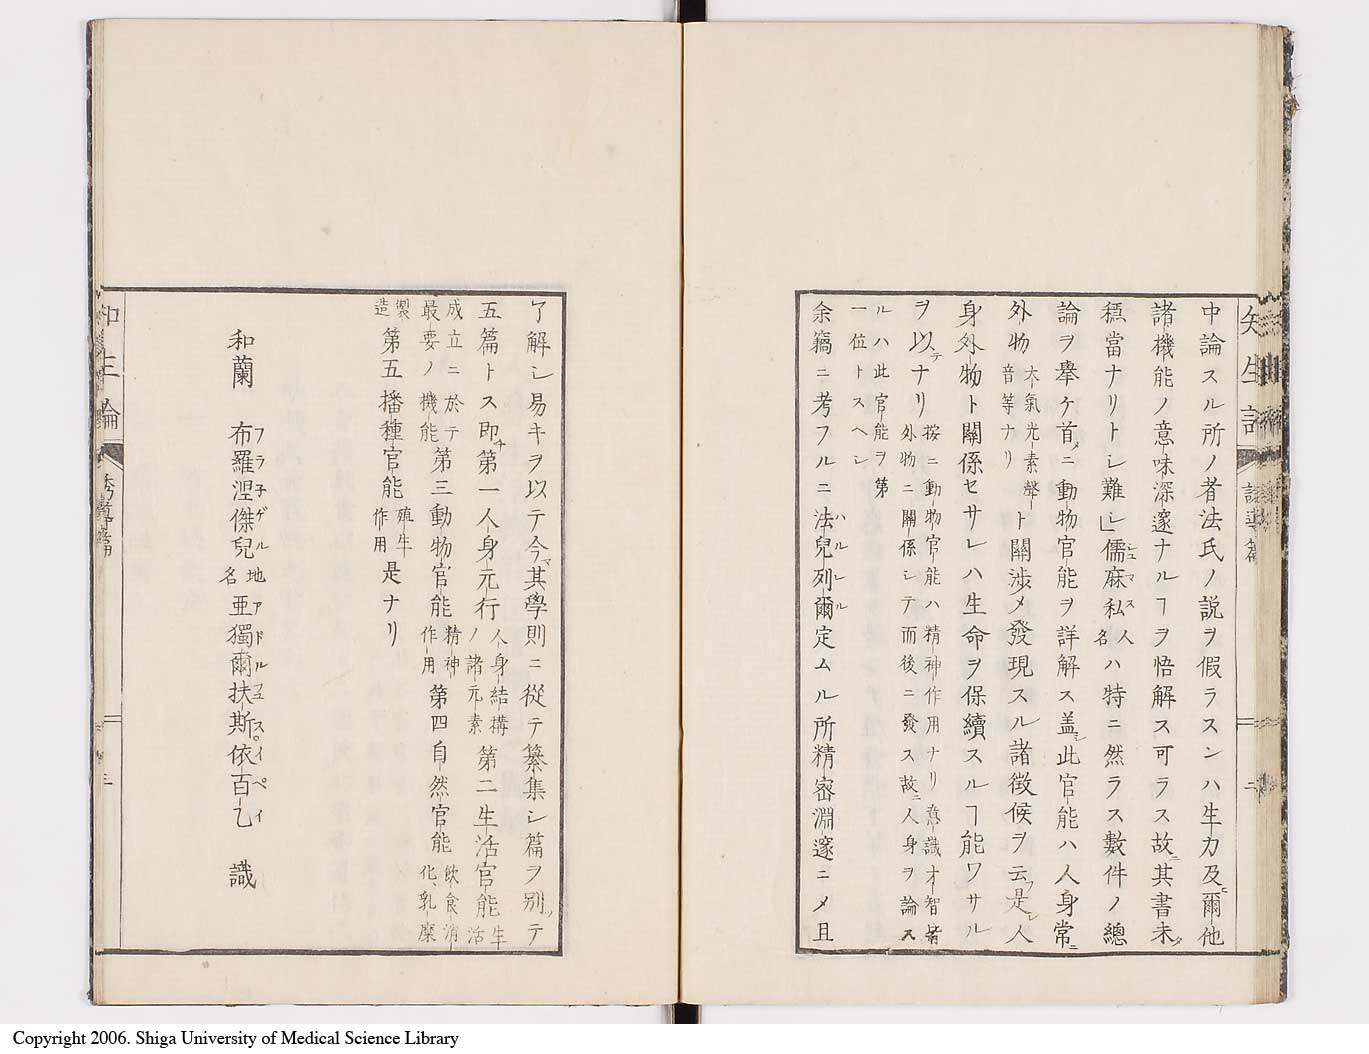 中論スル所ノ者法氏ノ説ヲ假ラスンハ生力及ヒ爾他
諸機能ノ意味深邃ナルヿヲ悟解ス可ラス故ニ其書未タ
穩當ナリトシ難シ」儒麻私シユマス人名ハ特ニ然ラス數件ノ總
論ヲ擧ケ首メニ動物官能ヲ詳解ス盖シ此官能ハ人身常ニ
外物大氣光素聲音等ナリト關渉メ發現スル諸徴候ヲ云フ是レ人
身外物ト關係セサレハ生命ヲ保續スルヿ能ワサル
ヲ以テナリ按ニ動物官能ハ精神作用ナリ意識才智皆外物ニ關係シテ而後ニ發ス故ニ人身ヲ論ス
ルハ此官能ヲ第一位トスヘシ
余竊ニ考フルニ法兒列爾ハルレル定ムル所精密淵邃ニメ且
了解シ易キヲ以テ今マ其學則ニ從テ纂集シ篇ヲ別ツテ
五篇トス即チ第一人身元行人身結構ノ諸元素第二生活官能生活
成立ニ於テ最要ノ機能第三動物官能精神作用第四自然官能飲食消化、乳糜
製造第五播種官能殖生作用是ナリ
和蘭 布羅涅傑兒フラ子ゲル地名亜獨爾扶斯アドルフユス。依百乙イペイ 識
知生論
二